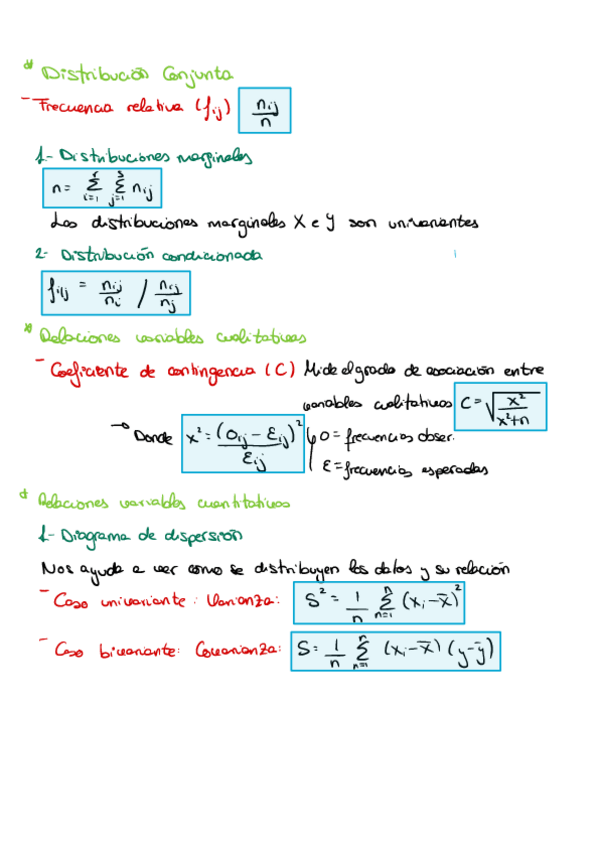 a) Distribución Conjunta
- Frecuencia relativa (fij) nij/n
1- Distribuciones marginales
n = Σ(i=1, r) Σ(j=1, s) nij
Las distribuciones marginales X e Y son univariantes
2- Distribución condicionada
fi/j = nij/ni / nij/nj
b) Relaciones variables cualitativas
- Coeficiente de contingencia (C) Mide el grado de asociación entre
variables cualitativas C = √(x²/(x²+n))
→ Donde x² = (Oij - Eij)²/Eij → O = frecuencias obser.
E = frecuencias esperadas
c) Relaciones variables cuantitativas
1- Diagrama de dispersión
Nos ayuda a ver como se distribuyen los datos y su relación
- Caso univariante: Varianza: S² = 1/n Σ(n=1, n) (xi - x̄)²
- Caso bivariante: Covarianza: S = 1/n Σ(n=1, n) (xi - x̄)(y - ȳ)